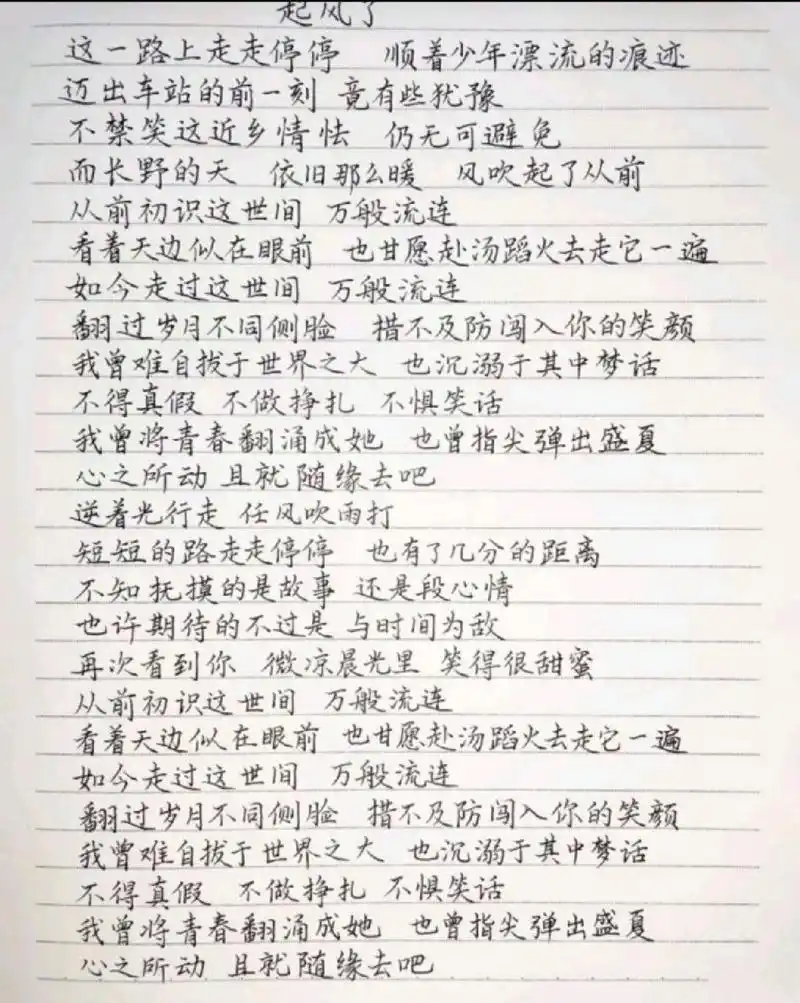 起风了
这一路上走走停停 顺着少年漂流的痕迹
迈出车站的前一刻 竟有些犹豫
不禁笑这近乡情怯 仍无可避免
而长野的天 依旧那么暖 风吹起了从前
从前初识这世间 万般流连
看着天边似在眼前 也甘愿赴汤蹈火去走它一遍
如今走过这世间 万般流连
翻过岁月不同侧脸 措不及防闯入你的笑颜
我曾难自拔于世界之大 也沉溺于其中梦话
不得真假 不做挣扎 不惧笑话
我曾将青春翻涌成她 也曾指尖弹出盛夏
心之所动 且就随缘去吧
逆着光行走 任风吹雨打
短短的路走走停停 也有了几分的距离
不知抚摸的是故事 还是段心情
也许期待的不过是 与时间为敌
再次看到你 微凉晨光里 笑得很甜蜜
从前初识这世间 万般流连
看着天边似在眼前 也甘愿赴汤蹈火去走它一遍
如今走过这世间 万般流连
翻过岁月不同侧脸 措不及防闯入你的笑颜
我曾难自拔于世界之大 也沉溺于其中梦话
不得真假 不做挣扎 不惧笑话
我曾将青春翻涌成她 也曾指尖弹出盛夏
心之所动 且就随缘去吧